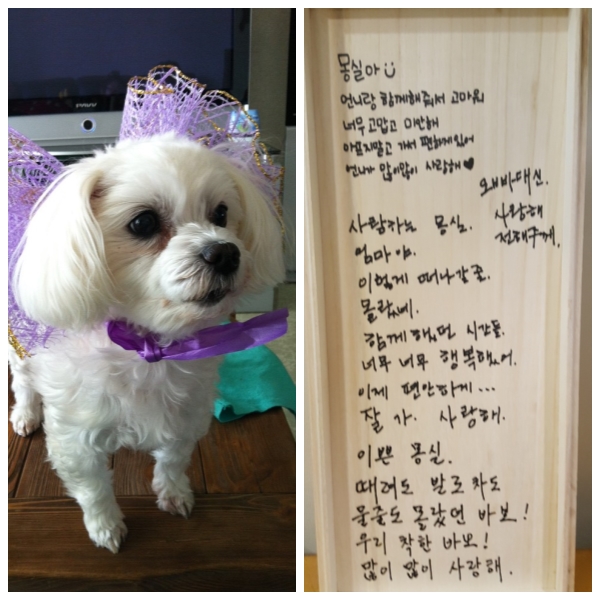 몽실아
언니랑 함께해줘서 고마워
너무 고맙고 미안해
아프지말고 가서 편하게있어
언니가 많이많이 사랑해♥
오빠대신.
사랑해
전해줄께.
사랑하는 몽실.
엄마야.
이렇게 떠나갈줄.
몰랐네.
함께했던 시간들.
너무 너무 행복했어.
이제 편안하게...
잘 가. 사랑해.
이쁜 몽실.
때려도 발로차도
물줄도 몰랐던 바보!
우리 착한 바보!
많이 많이 사랑해.